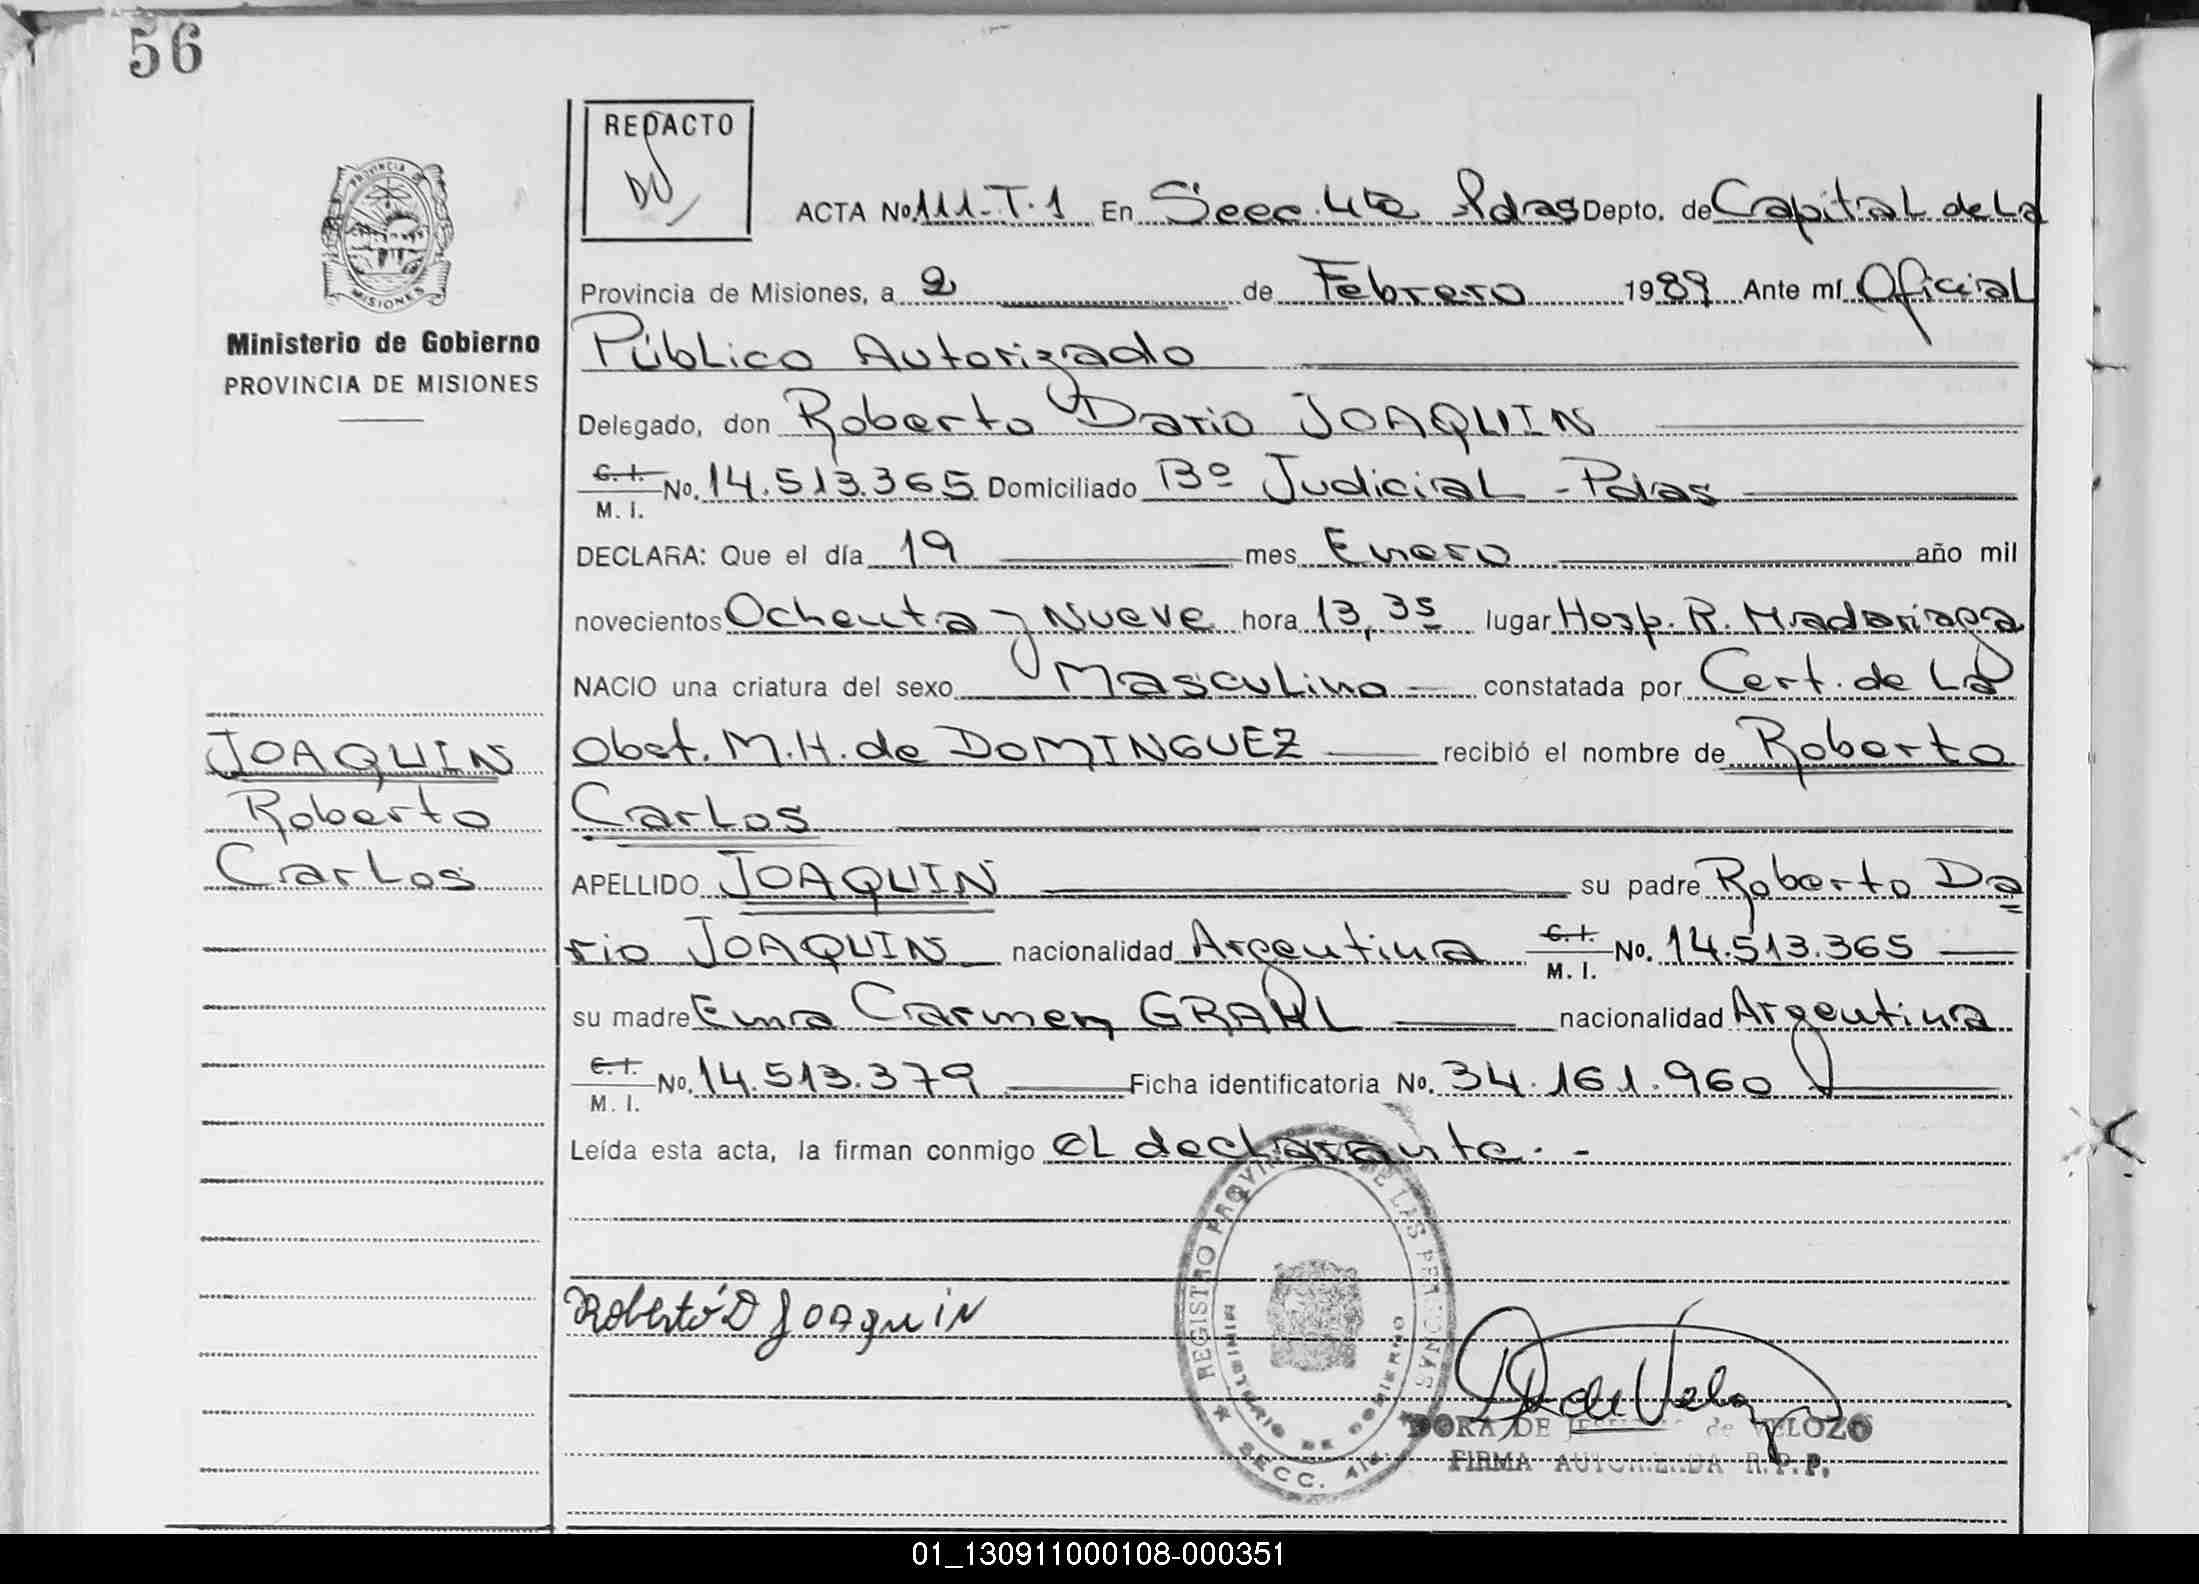 56
REDACTO
PROVINCIA DE
MISIONES
Ministerio de Gobierno
PROVINCIA DE MISIONES
ACTA No. 111-T.1 En Secc. 4ta Pdas Depto. de Capital de La
Provincia de Misiones, a 2 de Febrero 1989 Ante mí Oficial
Público Autorizado
Delegado, don Roberto Dario JOAQUIN
C. I.
M. I. No. 14.513.365 Domiciliado Bº Judicial - Pdas
DECLARA: Que el día 19 mes Enero año mil
novecientos Ochenta y Nueve hora 13,35 lugar Hosp. R. Madariaga
NACIO una criatura del sexo Masculino constatada por Cert. de La
Obst. M.H. de DOMINGUEZ recibió el nombre de Roberto
Carlos
APELLIDO JOAQUIN su padre Roberto Da
rio JOAQUIN nacionalidad Argentina C. I.
M. I. No. 14.513.365
su madre Ema Carmen GRAHL nacionalidad Argentina
C. I.
M. I. No. 14.513.379 Ficha identificatoria No. 34.161.960
Leída esta acta, la firman conmigo el declarante. -
JOAQUIN
Roberto
Carlos
Roberto D Joaquin
REGISTRO PROVINCIAL DE LAS PERSONAS
MINISTERIO DE GOBIERNO
SECC. 4ta.
D de Velozo
DORA DE de VELOZO
FIRMA AUTORIZADA R.P.P.
01_130911000108-000351